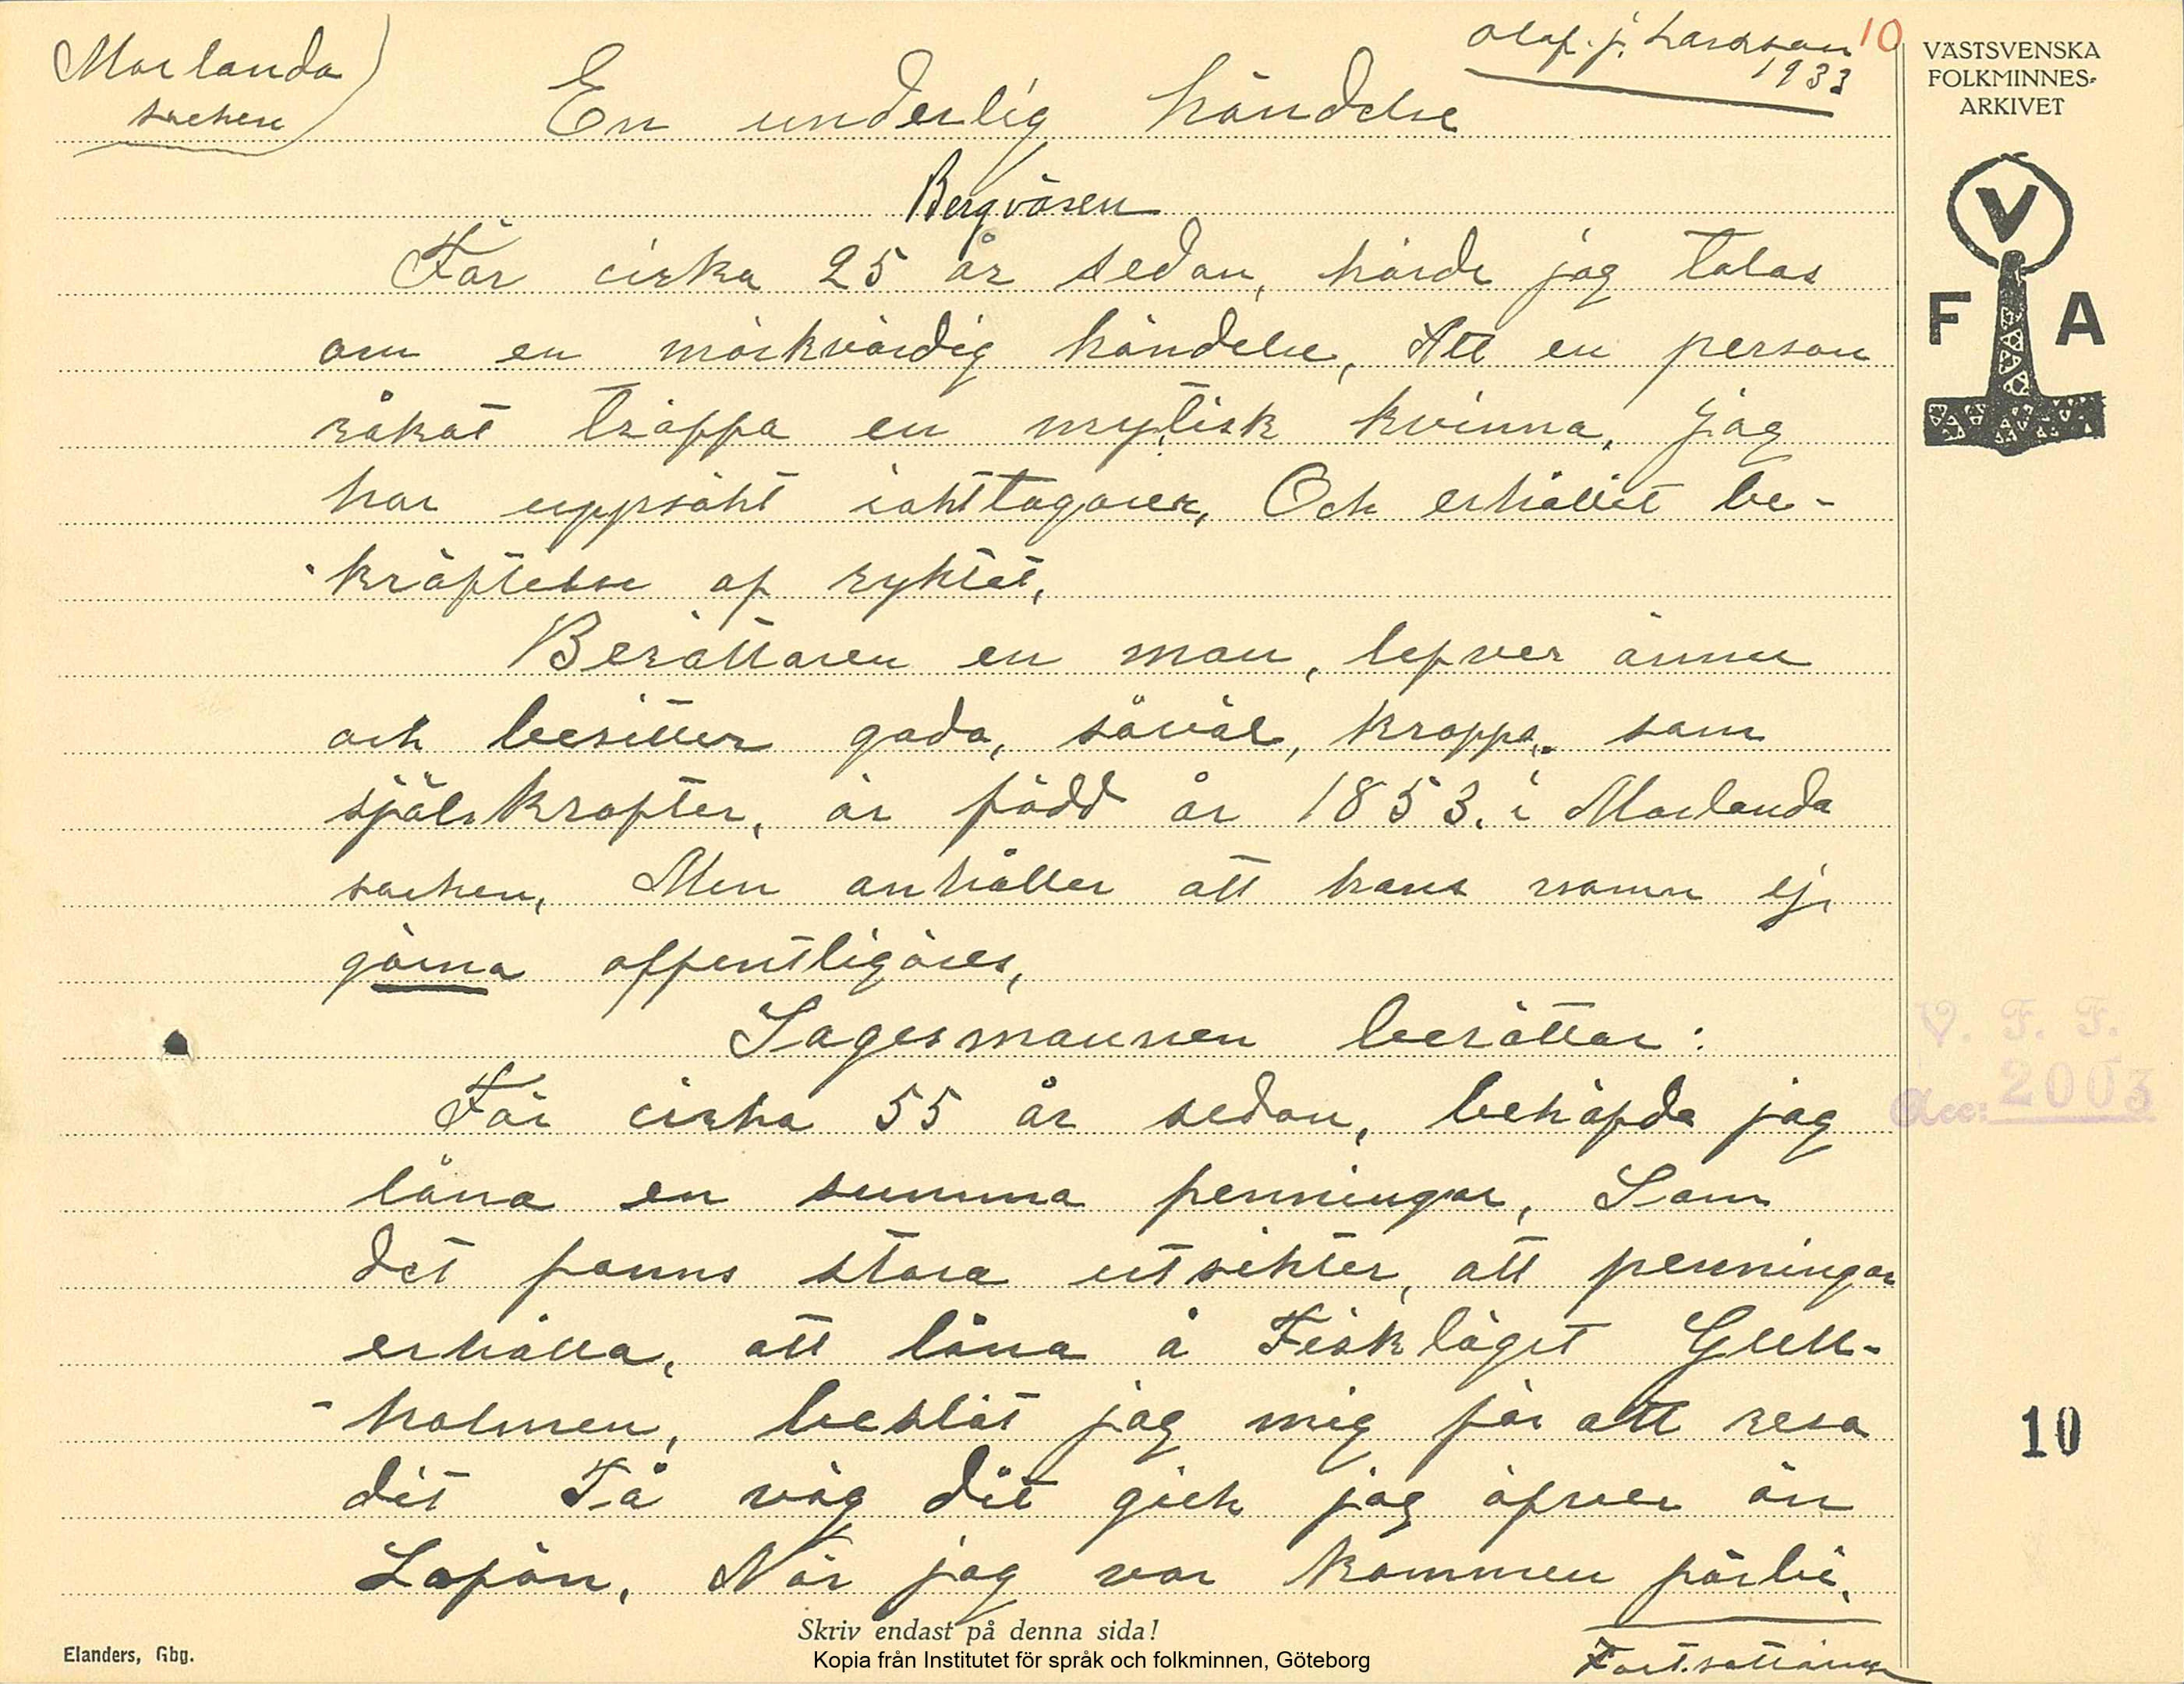 Morlanda
socken
Olof. j. Larsson 10
1933
En underlig händelse
Bergväsen
För cirka 25 år sedan, hörde jag talas
om en märkvärdig händelse, Att en person
råkat träffa en mytisk kvinna, jag
har uppsökt iakttagaren, Och erhållit be-
-kräftelse af ryktet,
Berättaren en man, lefver ännu
och besitter goda, såväl, kropps- som
själskrafter, är född år 1853. i Morlanda
socken, Men anhåller att hans namn ej,
gärna offentligöres,
Sagesmannen berättar:
För cirka 55 år sedan, behöfde jag
låna en summa penningar, Som
det fanns stora utsikter, att penningar
erhålla, att låna å Fiskläget Gull-
-holmen, beslöt jag mig för att resa
dit På väg dit gick jag öfver ön
Lafön, När jag var kommen förbi,
Fortsättning
VÄSTSVENSKA
FOLKMINNES-
ARKIVET
V
F A
V. F. F.
Acc: 2003
10
Skriv endast på denna sida!
Elanders, Gbg.
Kopia från Institutet för språk och folkminnen, Göteborg